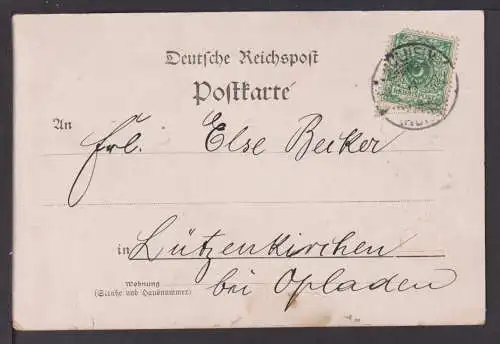 Deutsche Reichspost
Postkarte
An Frl. Else Becker
in Lützenkirchen
bei Opladen
Wohnung
(Straße und Hausnummer)